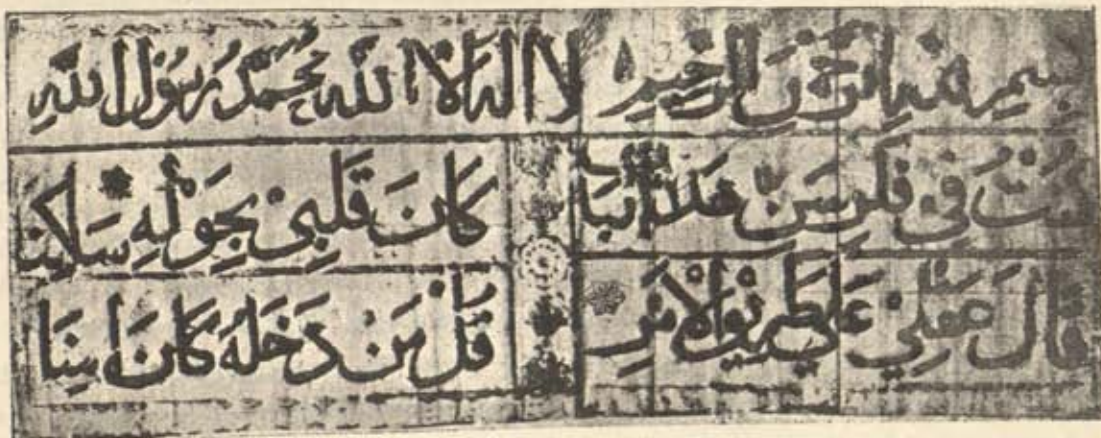 بسم الله الرحمن الرحيم لا اله الا الله محمد رسول الله
كُنْتُ فِي فِكْرِ سَنِّ كَانَ قَلْبِيْ بِحَوْلِهِ سَاكِنَا
قَالَ عَقْلِيْ عَلَي طَرِيْقِ الْاَمْرِ قُلْ مَنْ دَخَلَهُ كَانَ اٰمِنَا